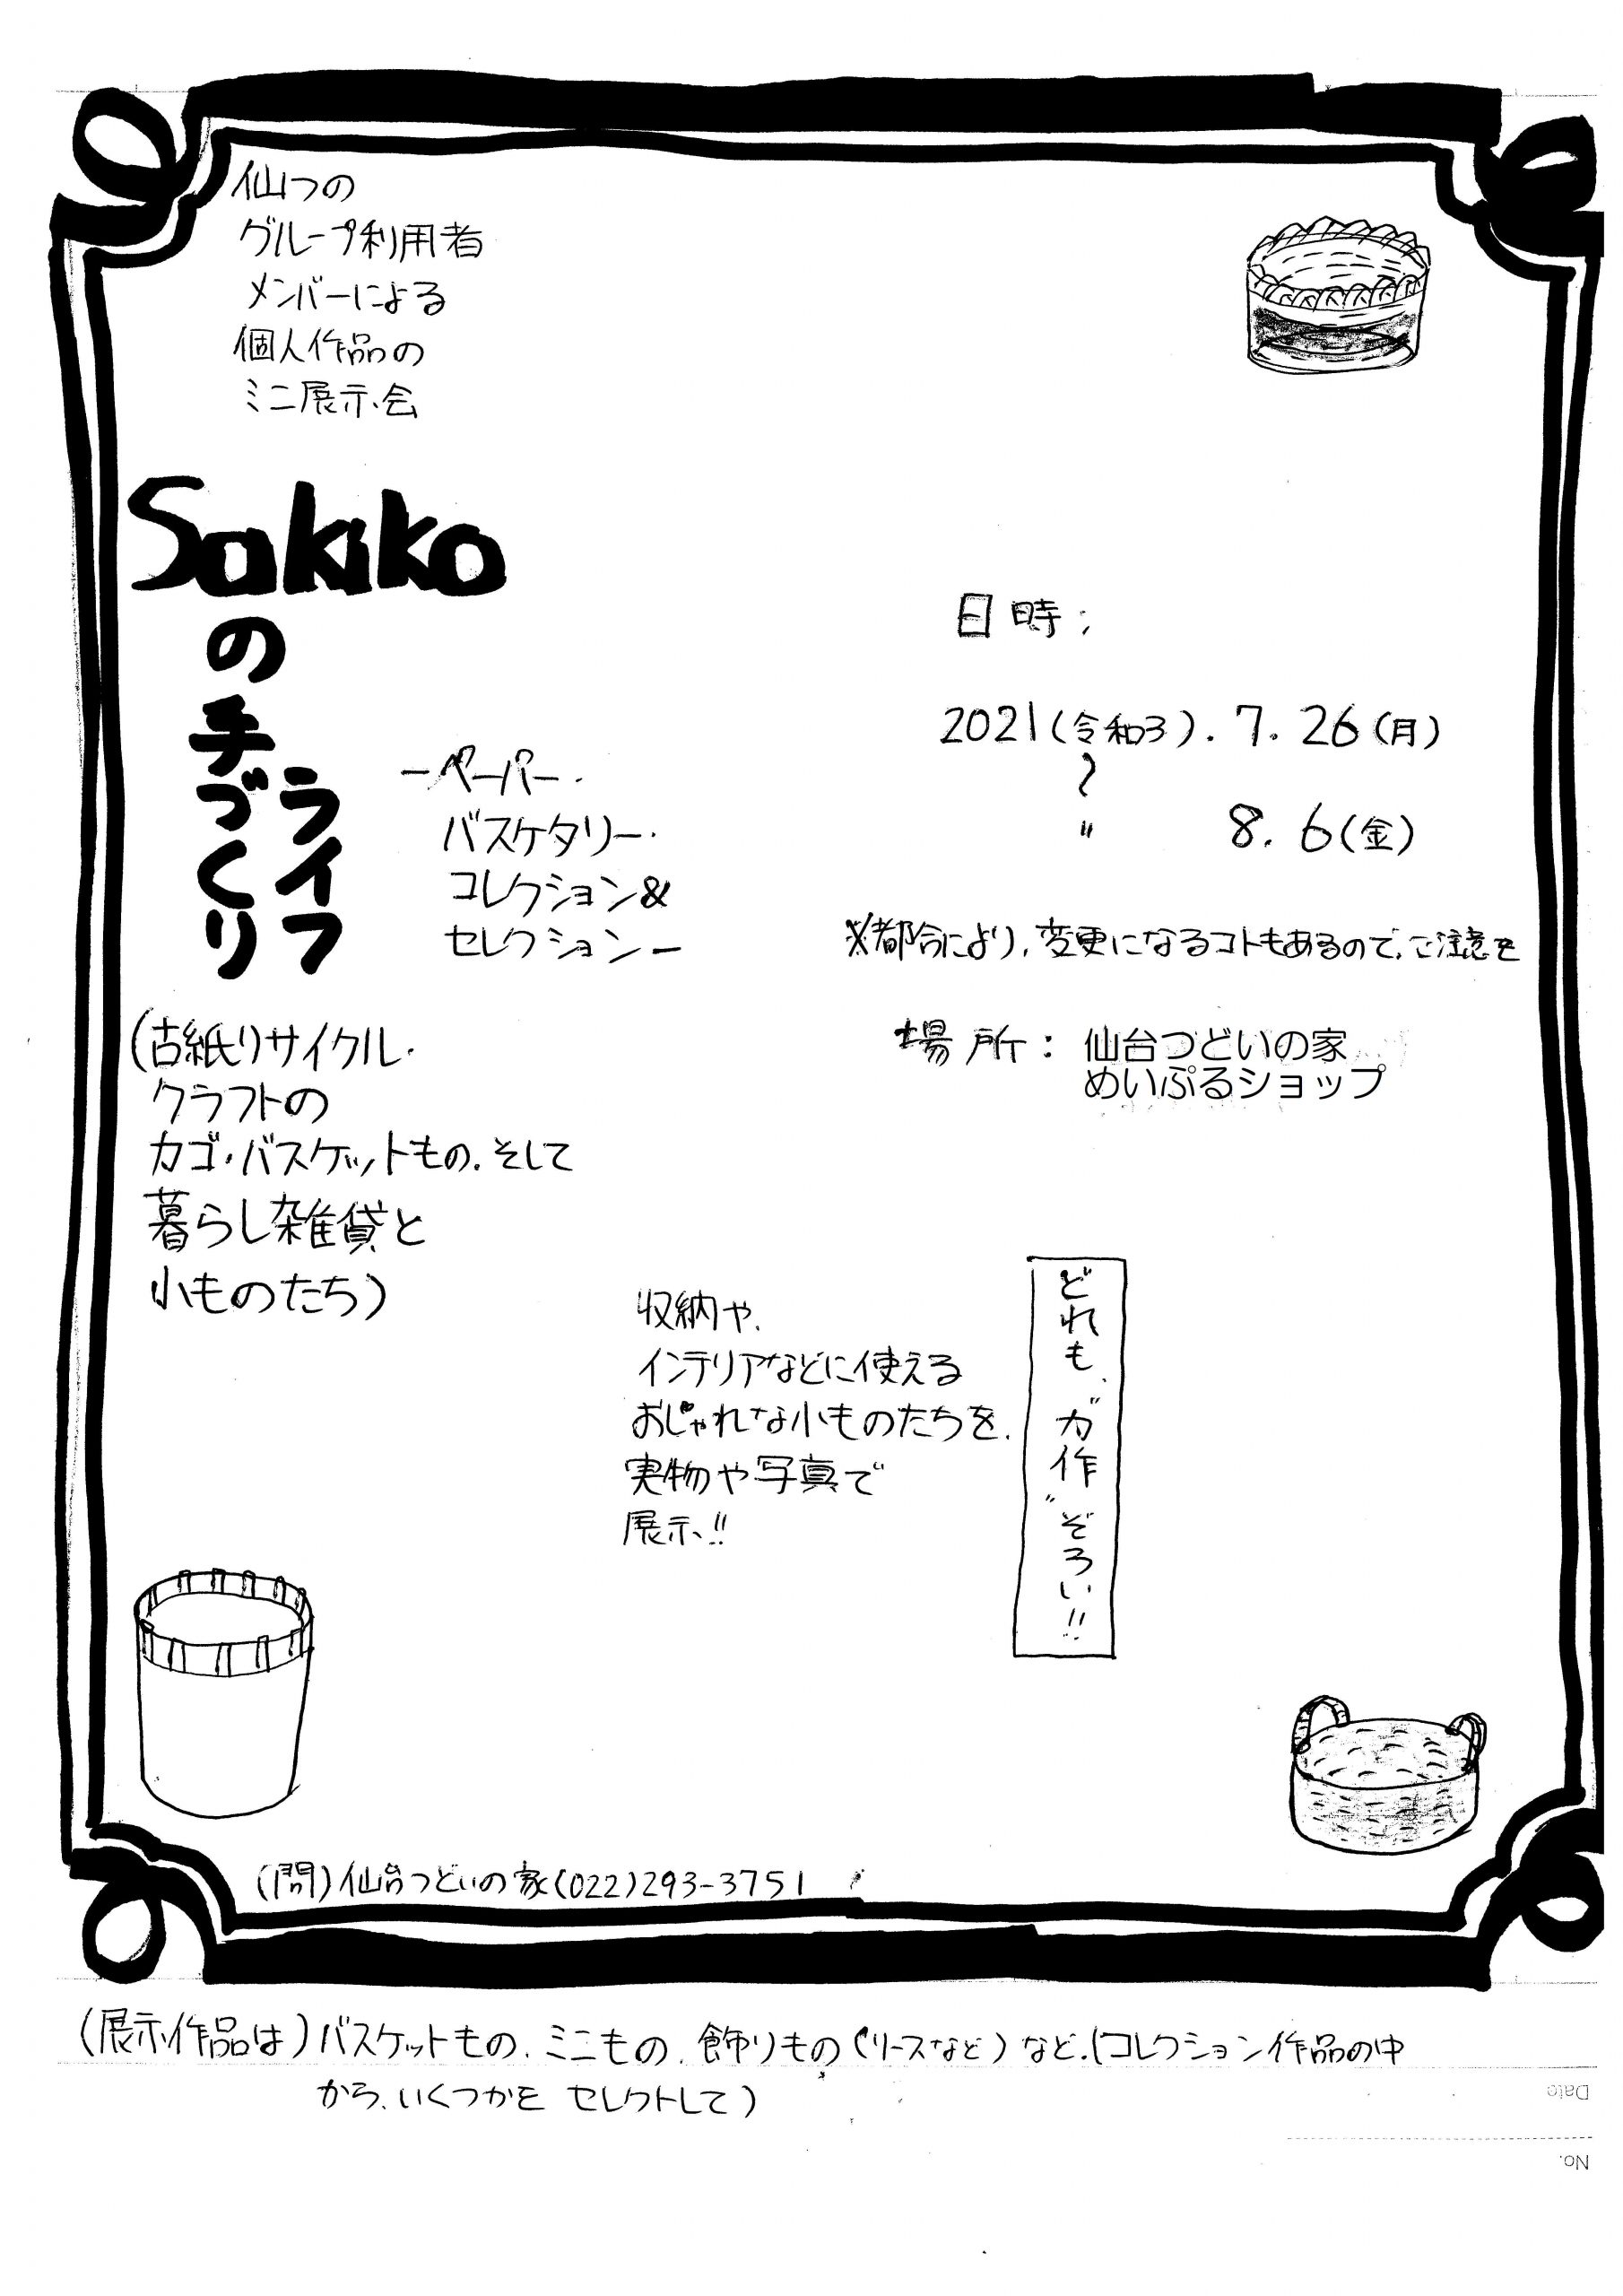 仙つの
グループ利用者
メンバーによる
個人作品の
ミニ展示会
Sakiko
の
手づくり
ライフ
ーペーパー・
バスケタリー・
コレクション&
セレクションー
(古紙リサイクル・
クラフトの
カゴ・バスケットもの、そして
暮らし雑貨と
小ものたち)
日時;
2021(令和3).7.26(月)
〜
〃 8.6(金)
※都合により、変更になるコトもあるので、ご注意を
場所: 仙台つどいの家
めいぷるショップ
収納や、
インテリアなどに使える
おしゃれな小ものたちを、
実物や写真で
展示!!
どれも、"力作"ぞろい!!
(問)仙台つどいの家(022)293-3751
(展示作品は)バスケットもの、ミニもの、飾りもの(リースなど)など、(コレクション作品の中
から、いくつかを セレクトして)
Date
No.